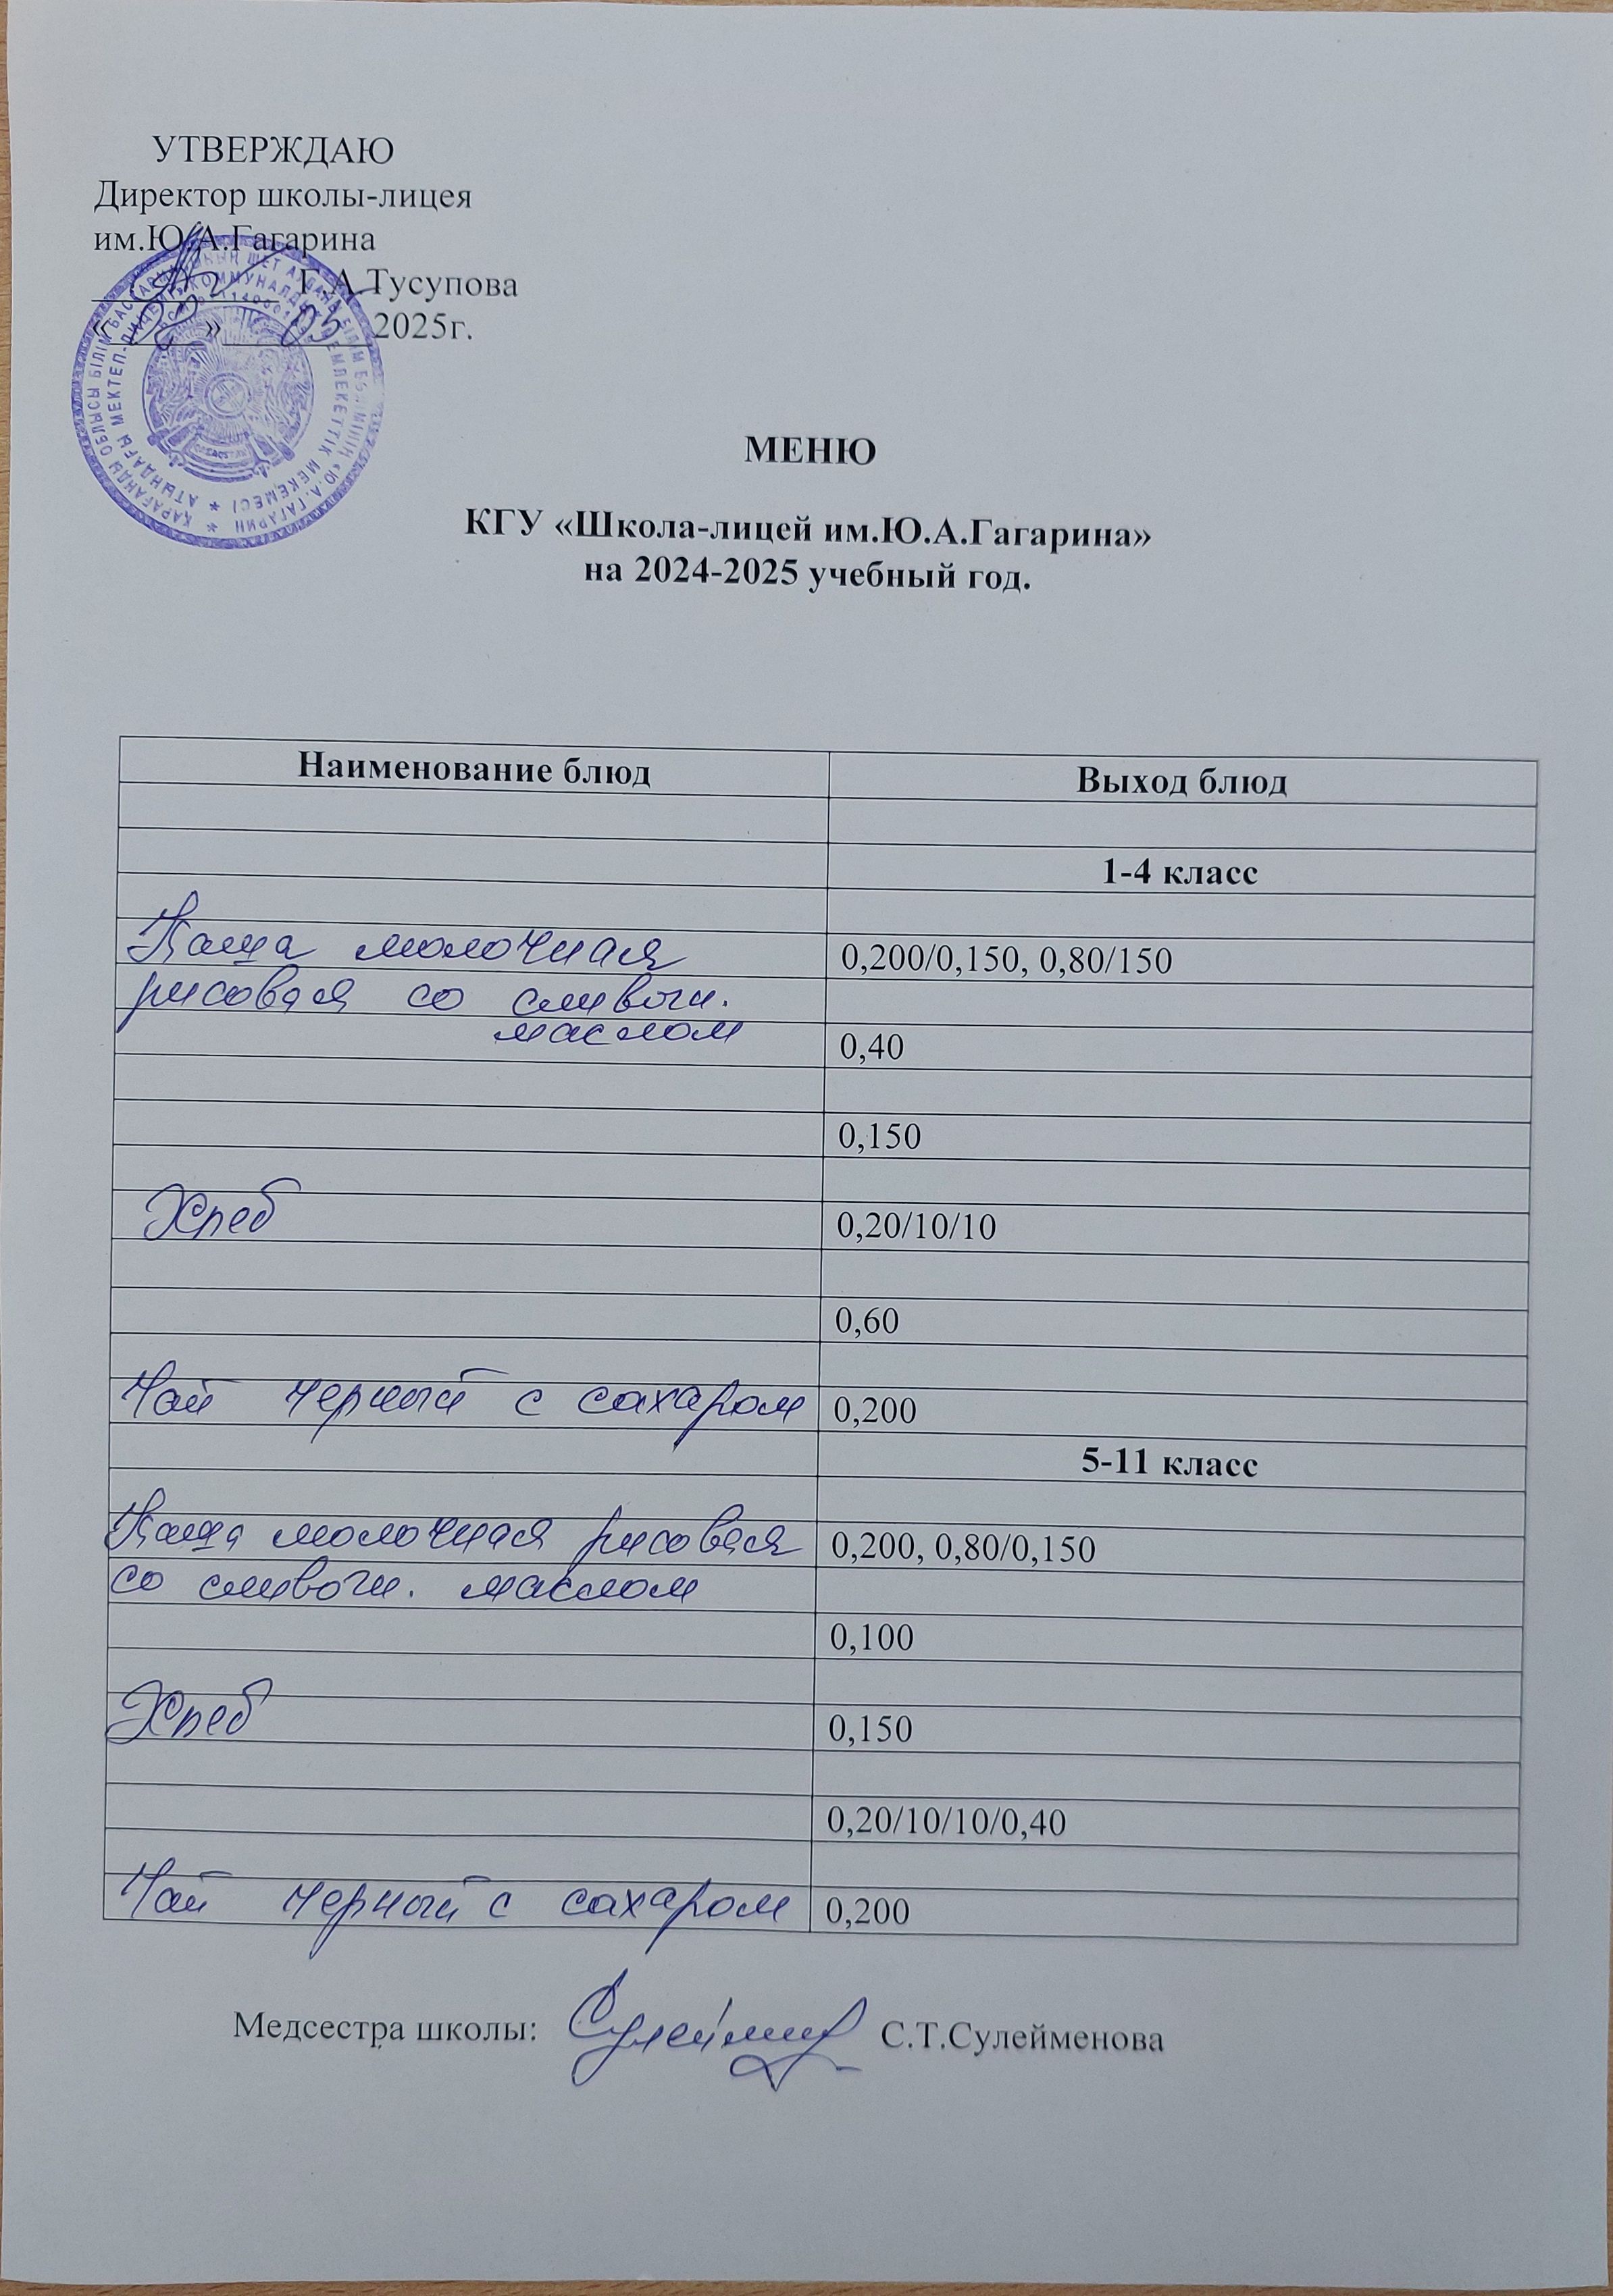 УТВЕРЖДАЮ
Директор школы-лицея
им.Ю.А.Гагарина
Г.А.Тусупова
« » 05 2025г.
МЕНЮ
КГУ «Школа-лицей им.Ю.А.Гагарина»
на 2024-2025 учебный год.
Наименование блюд Выход блюд
1-4 класс
Каша молочная 0,200/0,150, 0,80/150
рисовая со сливочн.
маслом 0,40
0,150
Хлеб 0,20/10/10
0,60
Чай черный с сахаром 0,200
5-11 класс
Каша молочная рисовая 0,200, 0,80/0,150
со сливочн. маслом
0,100
Хлеб 0,150
0,20/10/10/0,40
Чай черный с сахаром 0,200
Медсестра школы: С.Т.Сулейменова